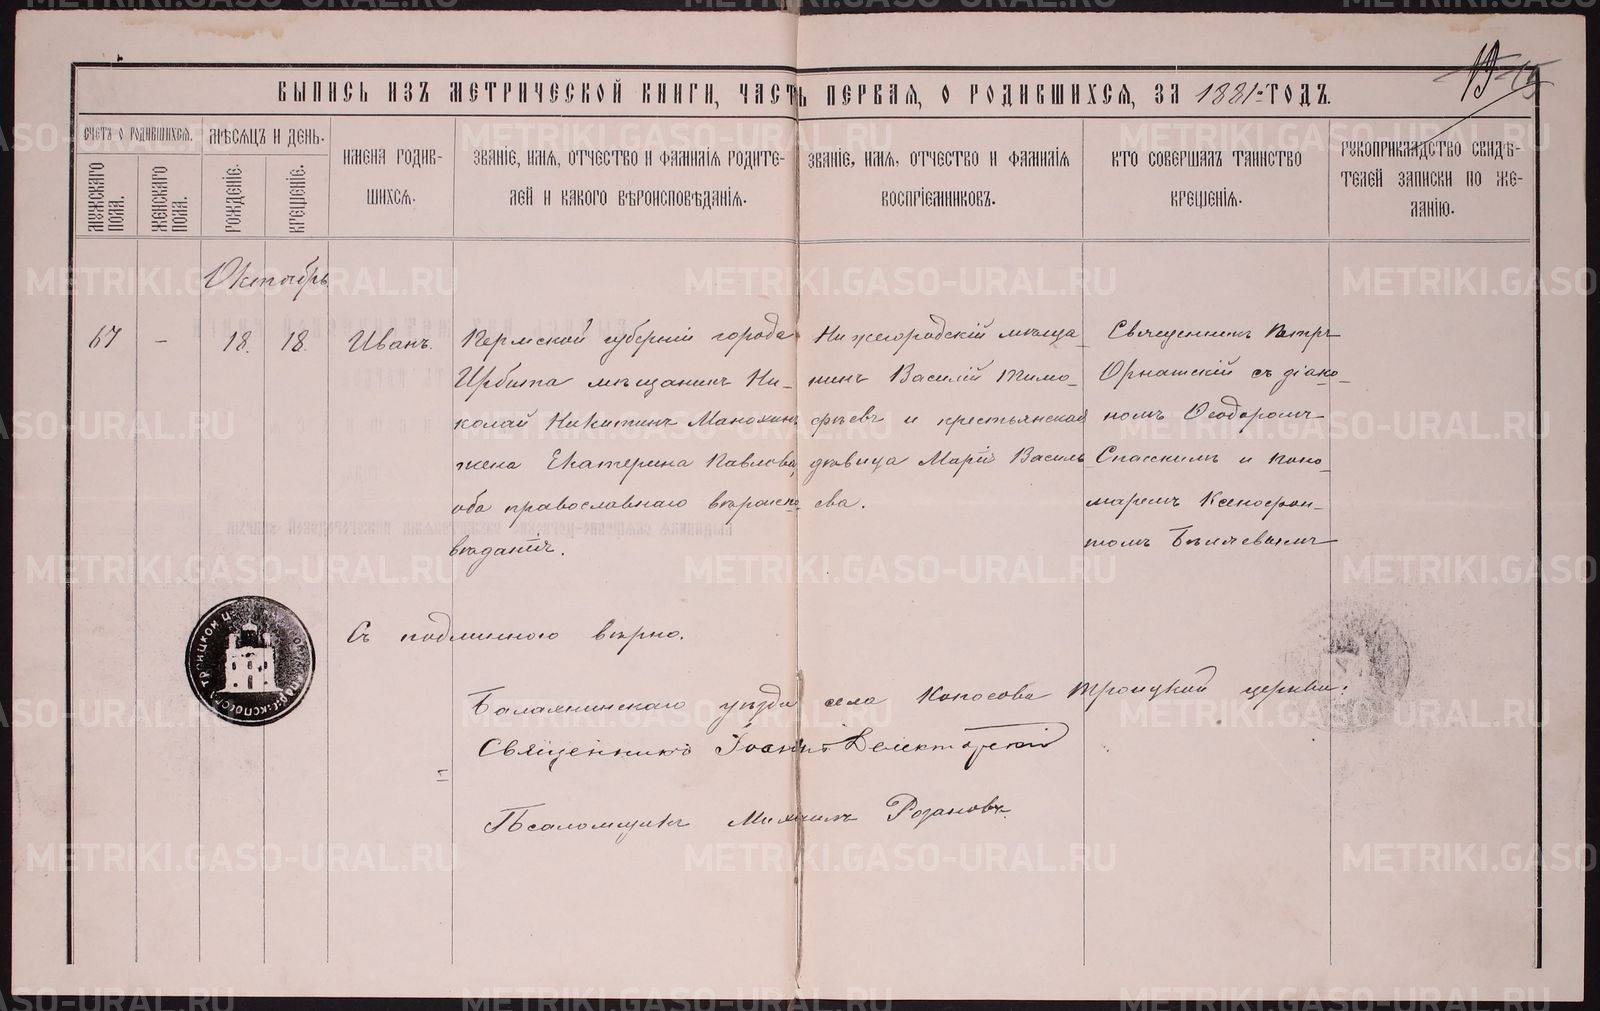 15
ВЫПИСЬ ИЗЪ МЕТРИЧЕСКОЙ КНИГИ, ЧАСТЬ ПЕРВАЯ, О РОДИВШИХСЯ, ЗА 1881 ГОДЪ.
СЧЕТЪ О РОДИВШИХСЯ.
МУЖСКАГО ПОЛА.
ЖЕНСКАГО ПОЛА.
МѢСЯЦЪ И ДЕНЬ.
РОЖДЕНІЕ.
КРЕЩЕНІЕ.
ИМЕНА РОДИВ-
ШИХСЯ.
ЗВАНІЕ, ИМЯ, ОТЧЕСТВО И ФАМИЛІЯ РОДИТЕ-
ЛЕЙ И КАКОГО ВѢРОИСПОВѢДАНІЯ.
ЗВАНІЕ, ИМЯ, ОТЧЕСТВО И ФАМИЛІЯ
ВОСПРІЕМНИКОВЪ.
КТО СОВЕРШАЛЪ ТАИНСТВО
КРЕЩЕНІЯ.
РУКОПРИКЛАДСТВО СВИДѢ-
ТЕЛЕЙ ЗАПИСКИ ПО ЖЕ-
ЛАНІЮ.
Октябрь
67
-
18.
18.
Иванъ.
Пермской губерніи города
Ирбита мѣщанинъ Ни-
колай Никитинъ Манохинъ
жена Екатерина Павлова,
оба православнаго вѣроиспо-
вѣданія.
Нижегородскій мѣща
нинъ Василій Тимо-
феевъ и крестьянская
дѣвица Марія Василь
ева.
Священникъ Петръ
Орнатскій съ діако-
номъ Ѳеодоромъ
Спасскимъ и поно-
маремъ Ксенофон-
томъ
Съ подлиннымъ вѣрно.
Балахнинскаго уѣзда села Копосова Троицкой церкви.
Священникъ Іоаннъ
Псаломщикъ Михаилъ Розановъ.
METRIKI.GASO-URAL.RU